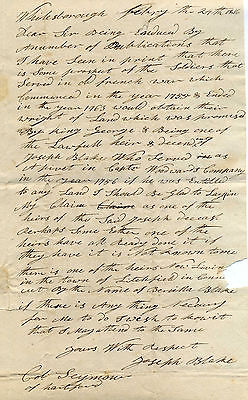 Whitesborough Febry the 29th
Dear Sir Being Enduced By
A number of Publications that
I have Seen in print that there
is Some prospect of the Soldiers that
Served in the french war which
commenced in the year 1755 & Ended
in the year 1763 would obtain their
wright of Land which was promised
By king George & Being one of
the Lawfull heirs of
Joseph Blake Who Served as
a print in Captn Woodwards Company
in the year & he was
to any Land I Should be Glad to
My Claim Claim as one of the
heirs of the Said Joseph deceasd
Perhaps Some Other one of the
heirs have all Ready done it if
they have it is Not known to me
there is one of the heirs Now Living
in the Town of Litchfield in Connec
cut By the Name of Blake
if there is Any thing Necessary
for Me to do I wish to know it
that I May attend to the Same
Yours With Respect
Joseph Blake
Col Seymour
of hartford